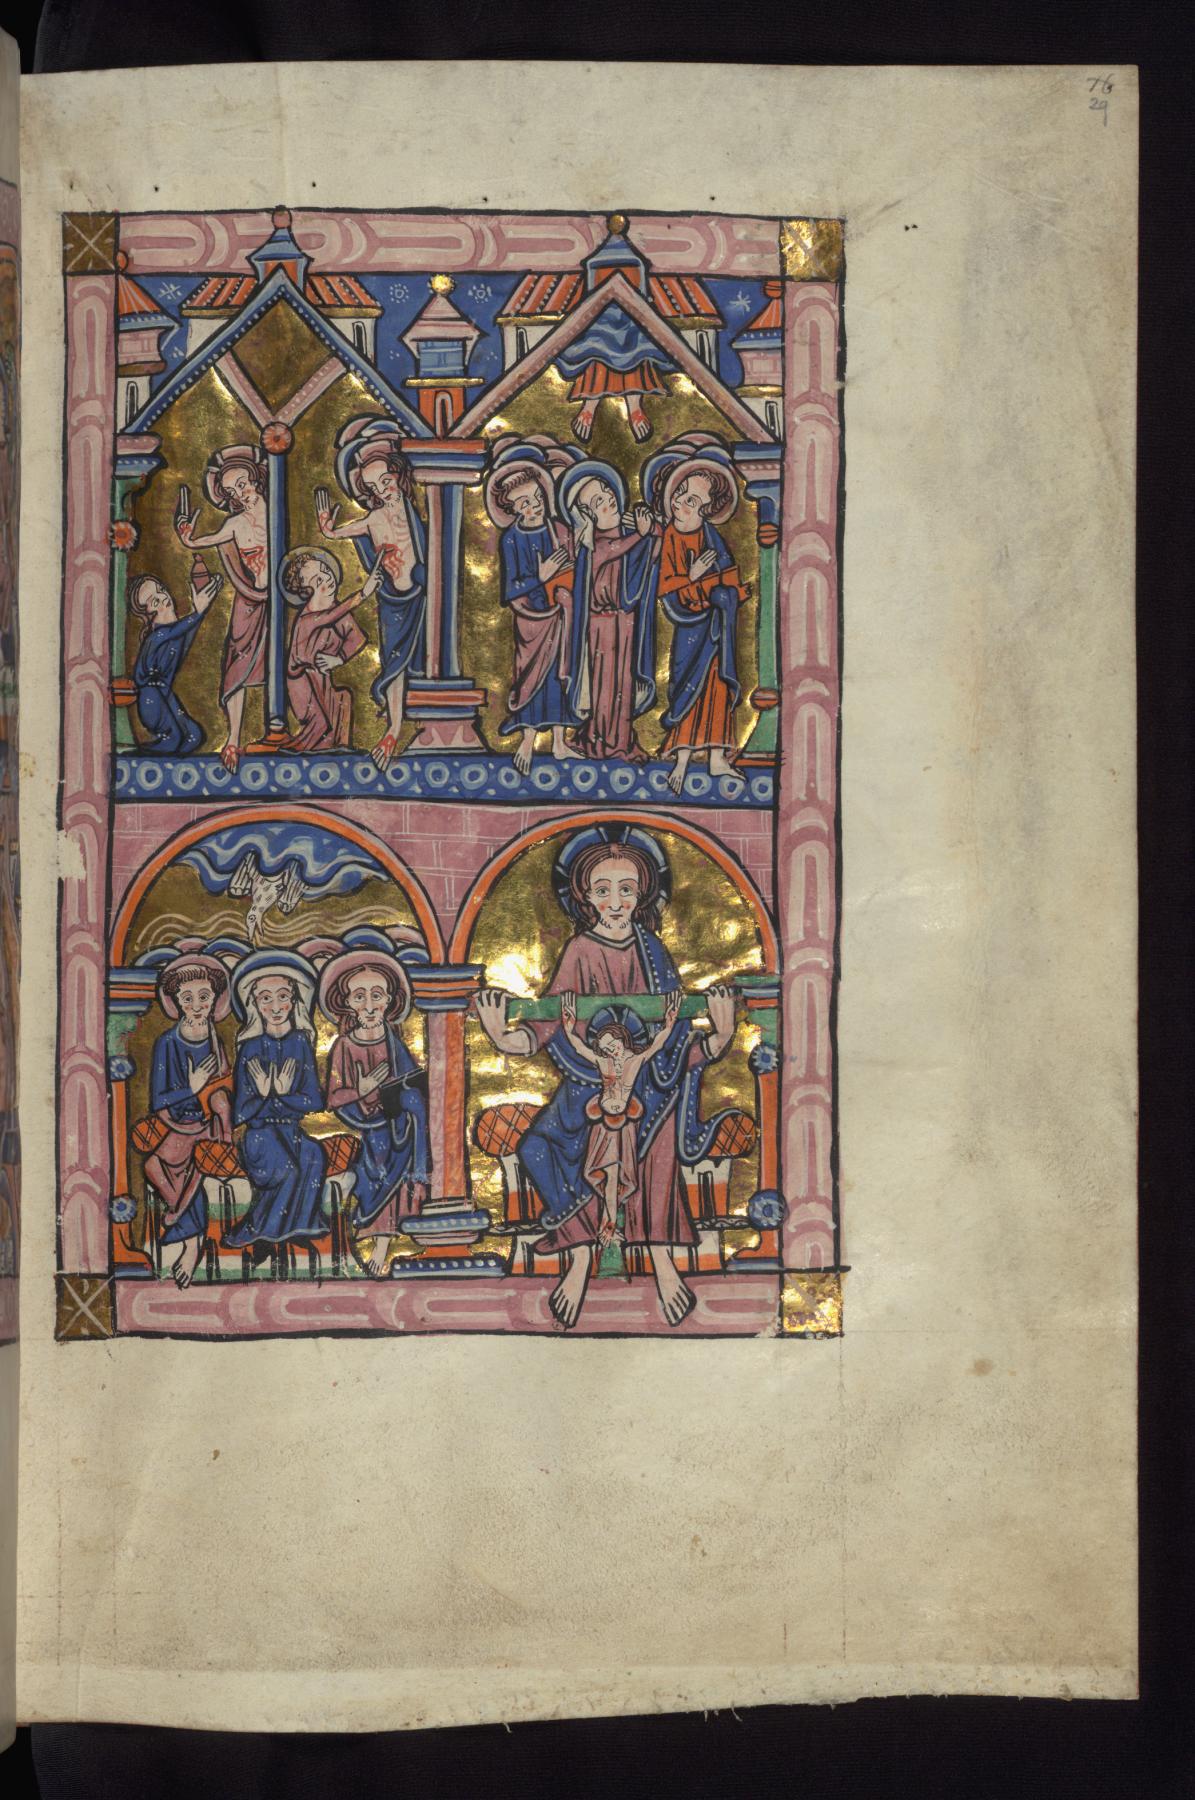 76
29